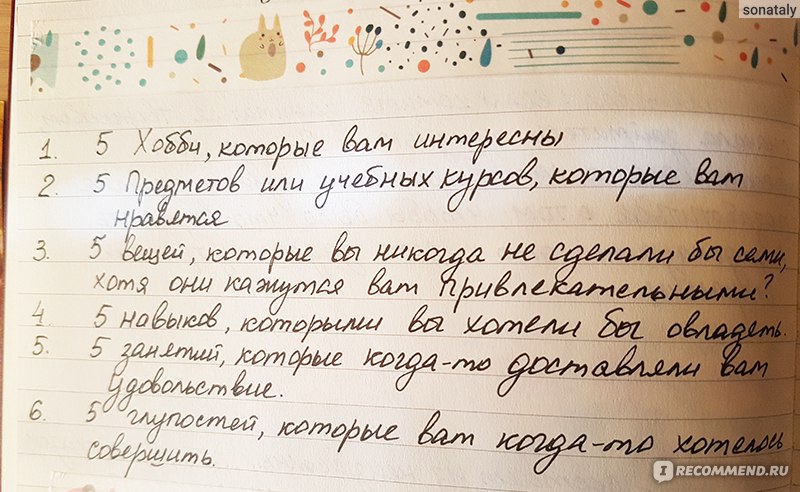 sonataly
1. 5 Хобби, которые вам интересны
2. 5 Предметов или учебных курсов, которые вам
нравятся
3. 5 вещей, которые вы никогда не сделали бы сами,
хотя они кажутся вам привлекательными?
4. 5 навыков, которыми вы хотели бы овладеть.
5. 5 занятий, которые когда-то доставляли вам
удовольствие.
6. 5 глупостей, которые вам когда-то хотелось
совершить.
I RECOMMEND.RU